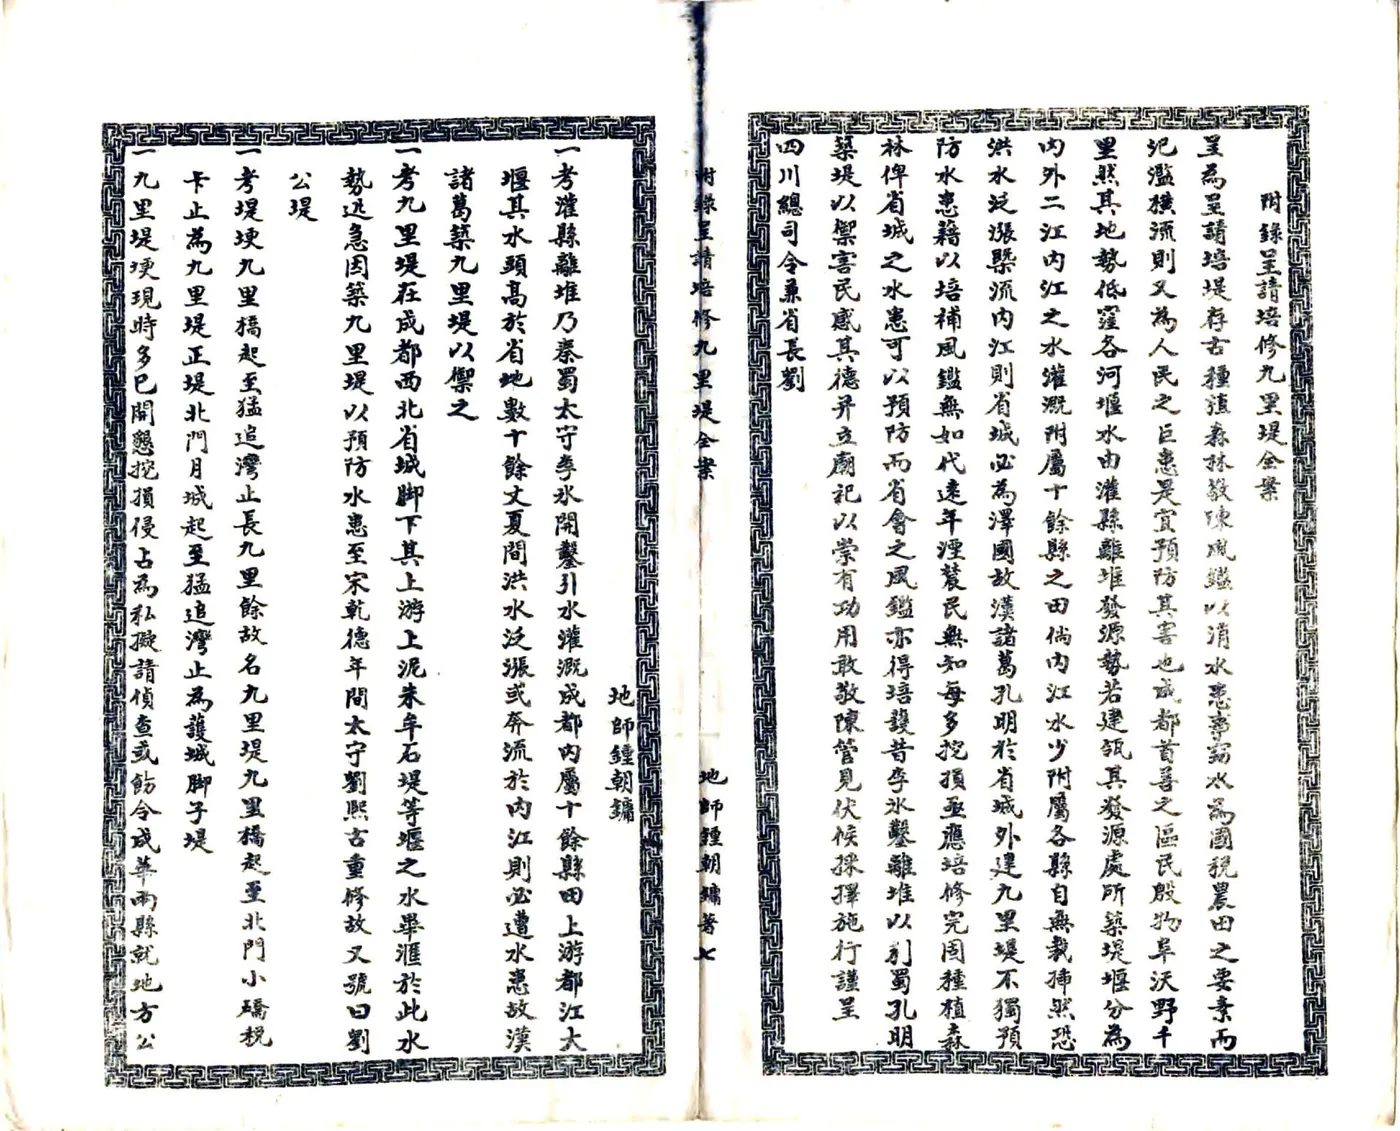 附錄呈請培修九里堤全案
呈為呈請培堤存古種殖森林敬陳風鑑以消水患事竊水為國稅農田之要素而
氾濫橫流則又為人民之巨患是宜預防其害也成都首善之區民殷物阜沃野千
里然其地勢低窪各河堰水由灌縣離堆發源勢若建瓴其發源處所築堤堰分為
內外二江內江之水灌溉附屬十餘縣之田倘內江水少附屬各縣自無栽插然恐
洪水泛漲槩流內江則省城必為澤國故漢諸葛孔明於省城外建九里堤不獨預
防水患藉以培補風鑑無如代遠年湮農民無知每多挖損亟應培修完固種植森
林俾省城之水患可以預防而省會之風鑑亦得培護昔李氷鑿離堆以引蜀孔明
築堤以禦害民感其德并立廟祀以崇有功用敢敬陳管見伏候採擇施行謹呈
四川總司令兼省長劉
附錄呈請培修九里堤全案 地師鍾朝鏞著 七
地師鍾朝鏞
一考灌縣離堆乃秦蜀太守李氷開鑿引水灌溉成都內屬十餘縣田上游都江大
堰其水頭高於省地數十餘丈夏間洪水泛漲或奔流於內江則必遭水患故漢
諸葛築九里堤以禦之
一考九里堤在成都西北省城脚下其上游上泥朱牟石堤等堰之水畢滙於此水
勢迅急因築九里堤以預防水患至宋乾德年間太守劉熙古重修故又號曰劉
公堤
一考堤埂九里橋起至猛追灣止長九里餘故名九里堤九里橋起至北門小礄稅
卡止為九里堤正堤北門月城起至猛追灣止為護城脚子堤
一九里堤埂現時多已開懇挖損侵占為私擬請偵查或飭令成華兩縣就地方公